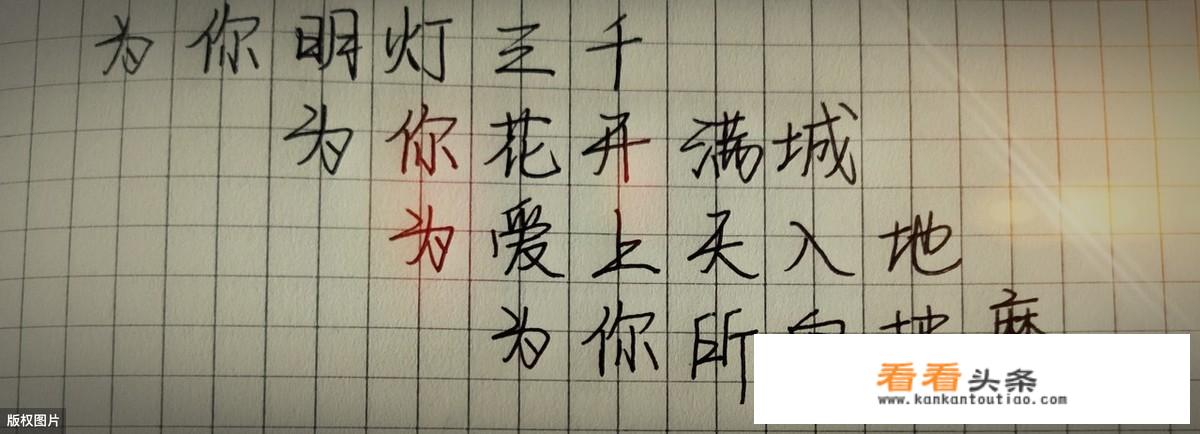 为你明灯三千
为你花开满城
为爱上天入地
为你所
看看头条
www.kankantoutiao.com
版权图片